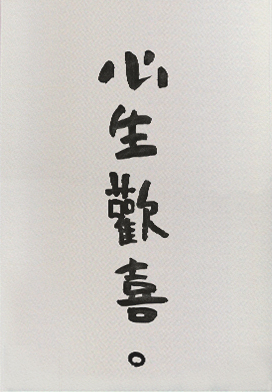 心生歡喜。